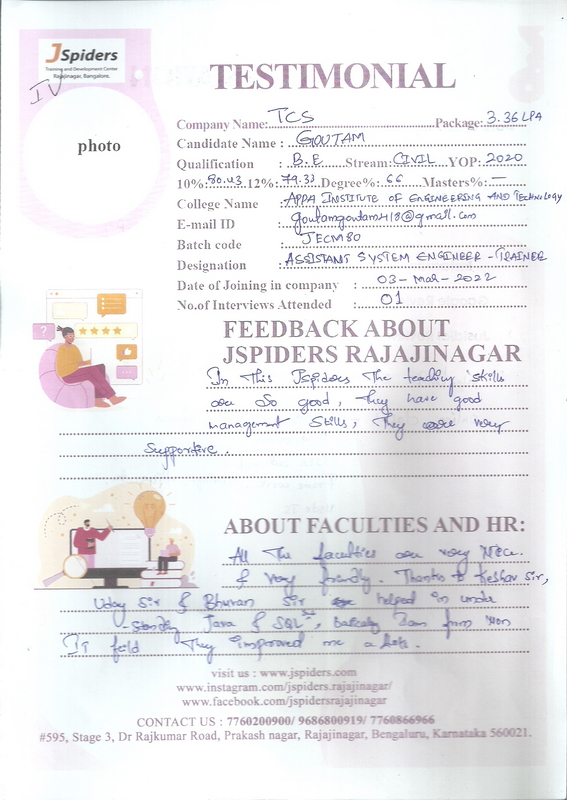 JSpiders
Training and Development Center
Rajajinagar, Bangalore.
IV
photo
TESTIMONIAL
Company Name: TCS Package: 3.36 LPA
Candidate Name : GOUTAM
Qualification : B.E Stream: CIVIL YOP: 2020
10%: 80.43 12%: 79.33 Degree%: 66 Masters% —
College Name : APPA INSTITUTE OF ENGINEERING AND TECHNOLOGY
E-mail ID : goutamgoutam418@gmail.com
Batch code : JECM80
Designation : ASSISTANT SYSTEM ENGINEER - TRAINEE
Date of Joining in company : 03 - Mar - 2022
No.of Interviews Attended : 01
FEEDBACK ABOUT
JSPIDERS RAJAJINAGAR
In This Jspiders The teaching skills
are so good, They have good
management skills, They are very
supportive.
ABOUT FACULTIES AND HR:
All The faculties are very Nice.
& very friendly. Thanks to Keshav sir,
Uday sir & Bhuvan sir helped in under
standing Java & SQL, basically I am from Non
IT field They improved me a lot.
visit us : www.jspiders.com
www.instagram.com/jspiders.rajajinagar/
www.facebook.com/jspidersrajajinagar
CONTACT US : 7760200900/ 9686800919/ 7760866966
#595, Stage 3, Dr Rajkumar Road, Prakash nagar, Rajajinagar, Bengaluru, Karnataka 560021.